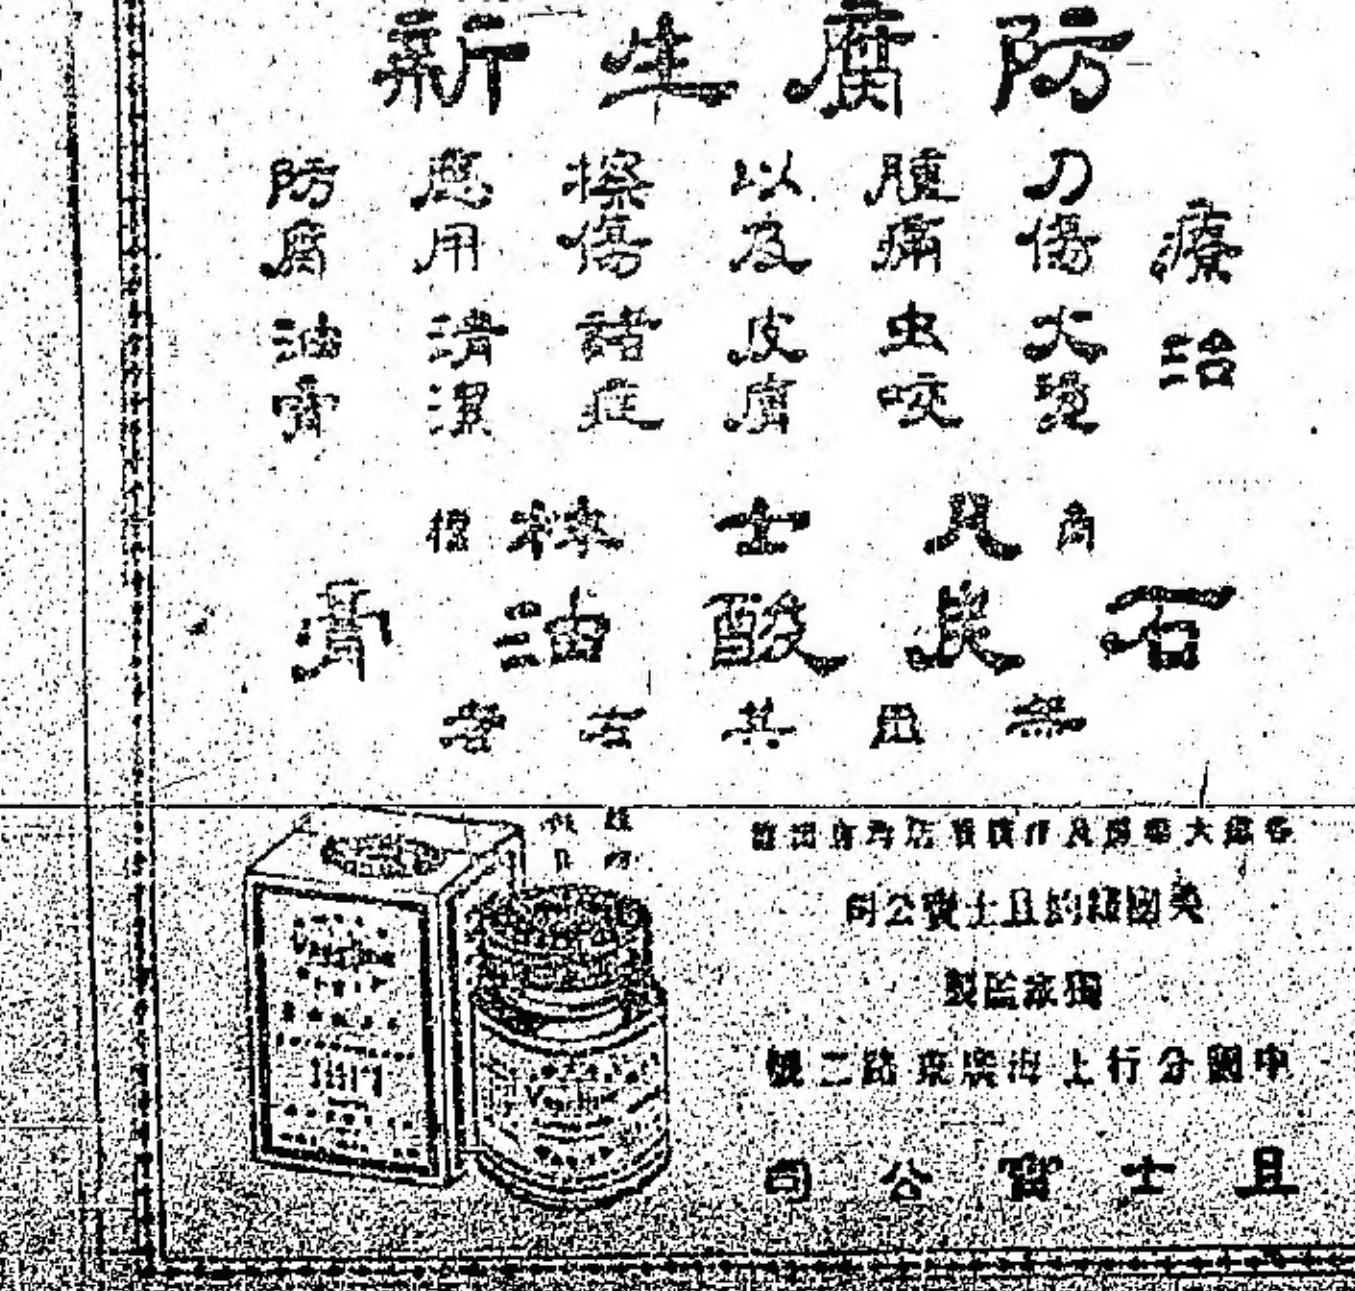 防腐生新
療治
刀傷火燙
腫痛虫咬
以及皮膚
擦傷諸症
應用清潔
防腐油膏
商凡士林標
石炭酸油膏
無出其右者
大藥房及洋貨店均有出售
美國紐約旦士寶公司
獨家監製
中國分行上海廣東路二號
旦士寶公司
Vaseline
Vaseline